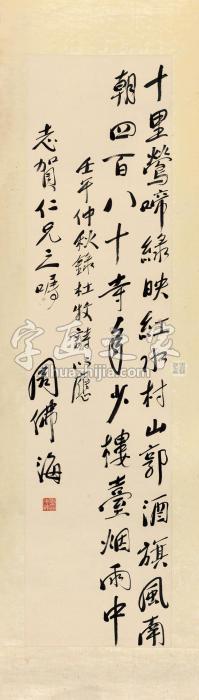 十里鶯啼綠映紅水村山郭酒旗風南
朝四百八十寺多少樓臺烟雨中
壬午仲秋錄杜牧詩以應
志賀仁兄之囑
周佛海
字画世家
huashijia.com